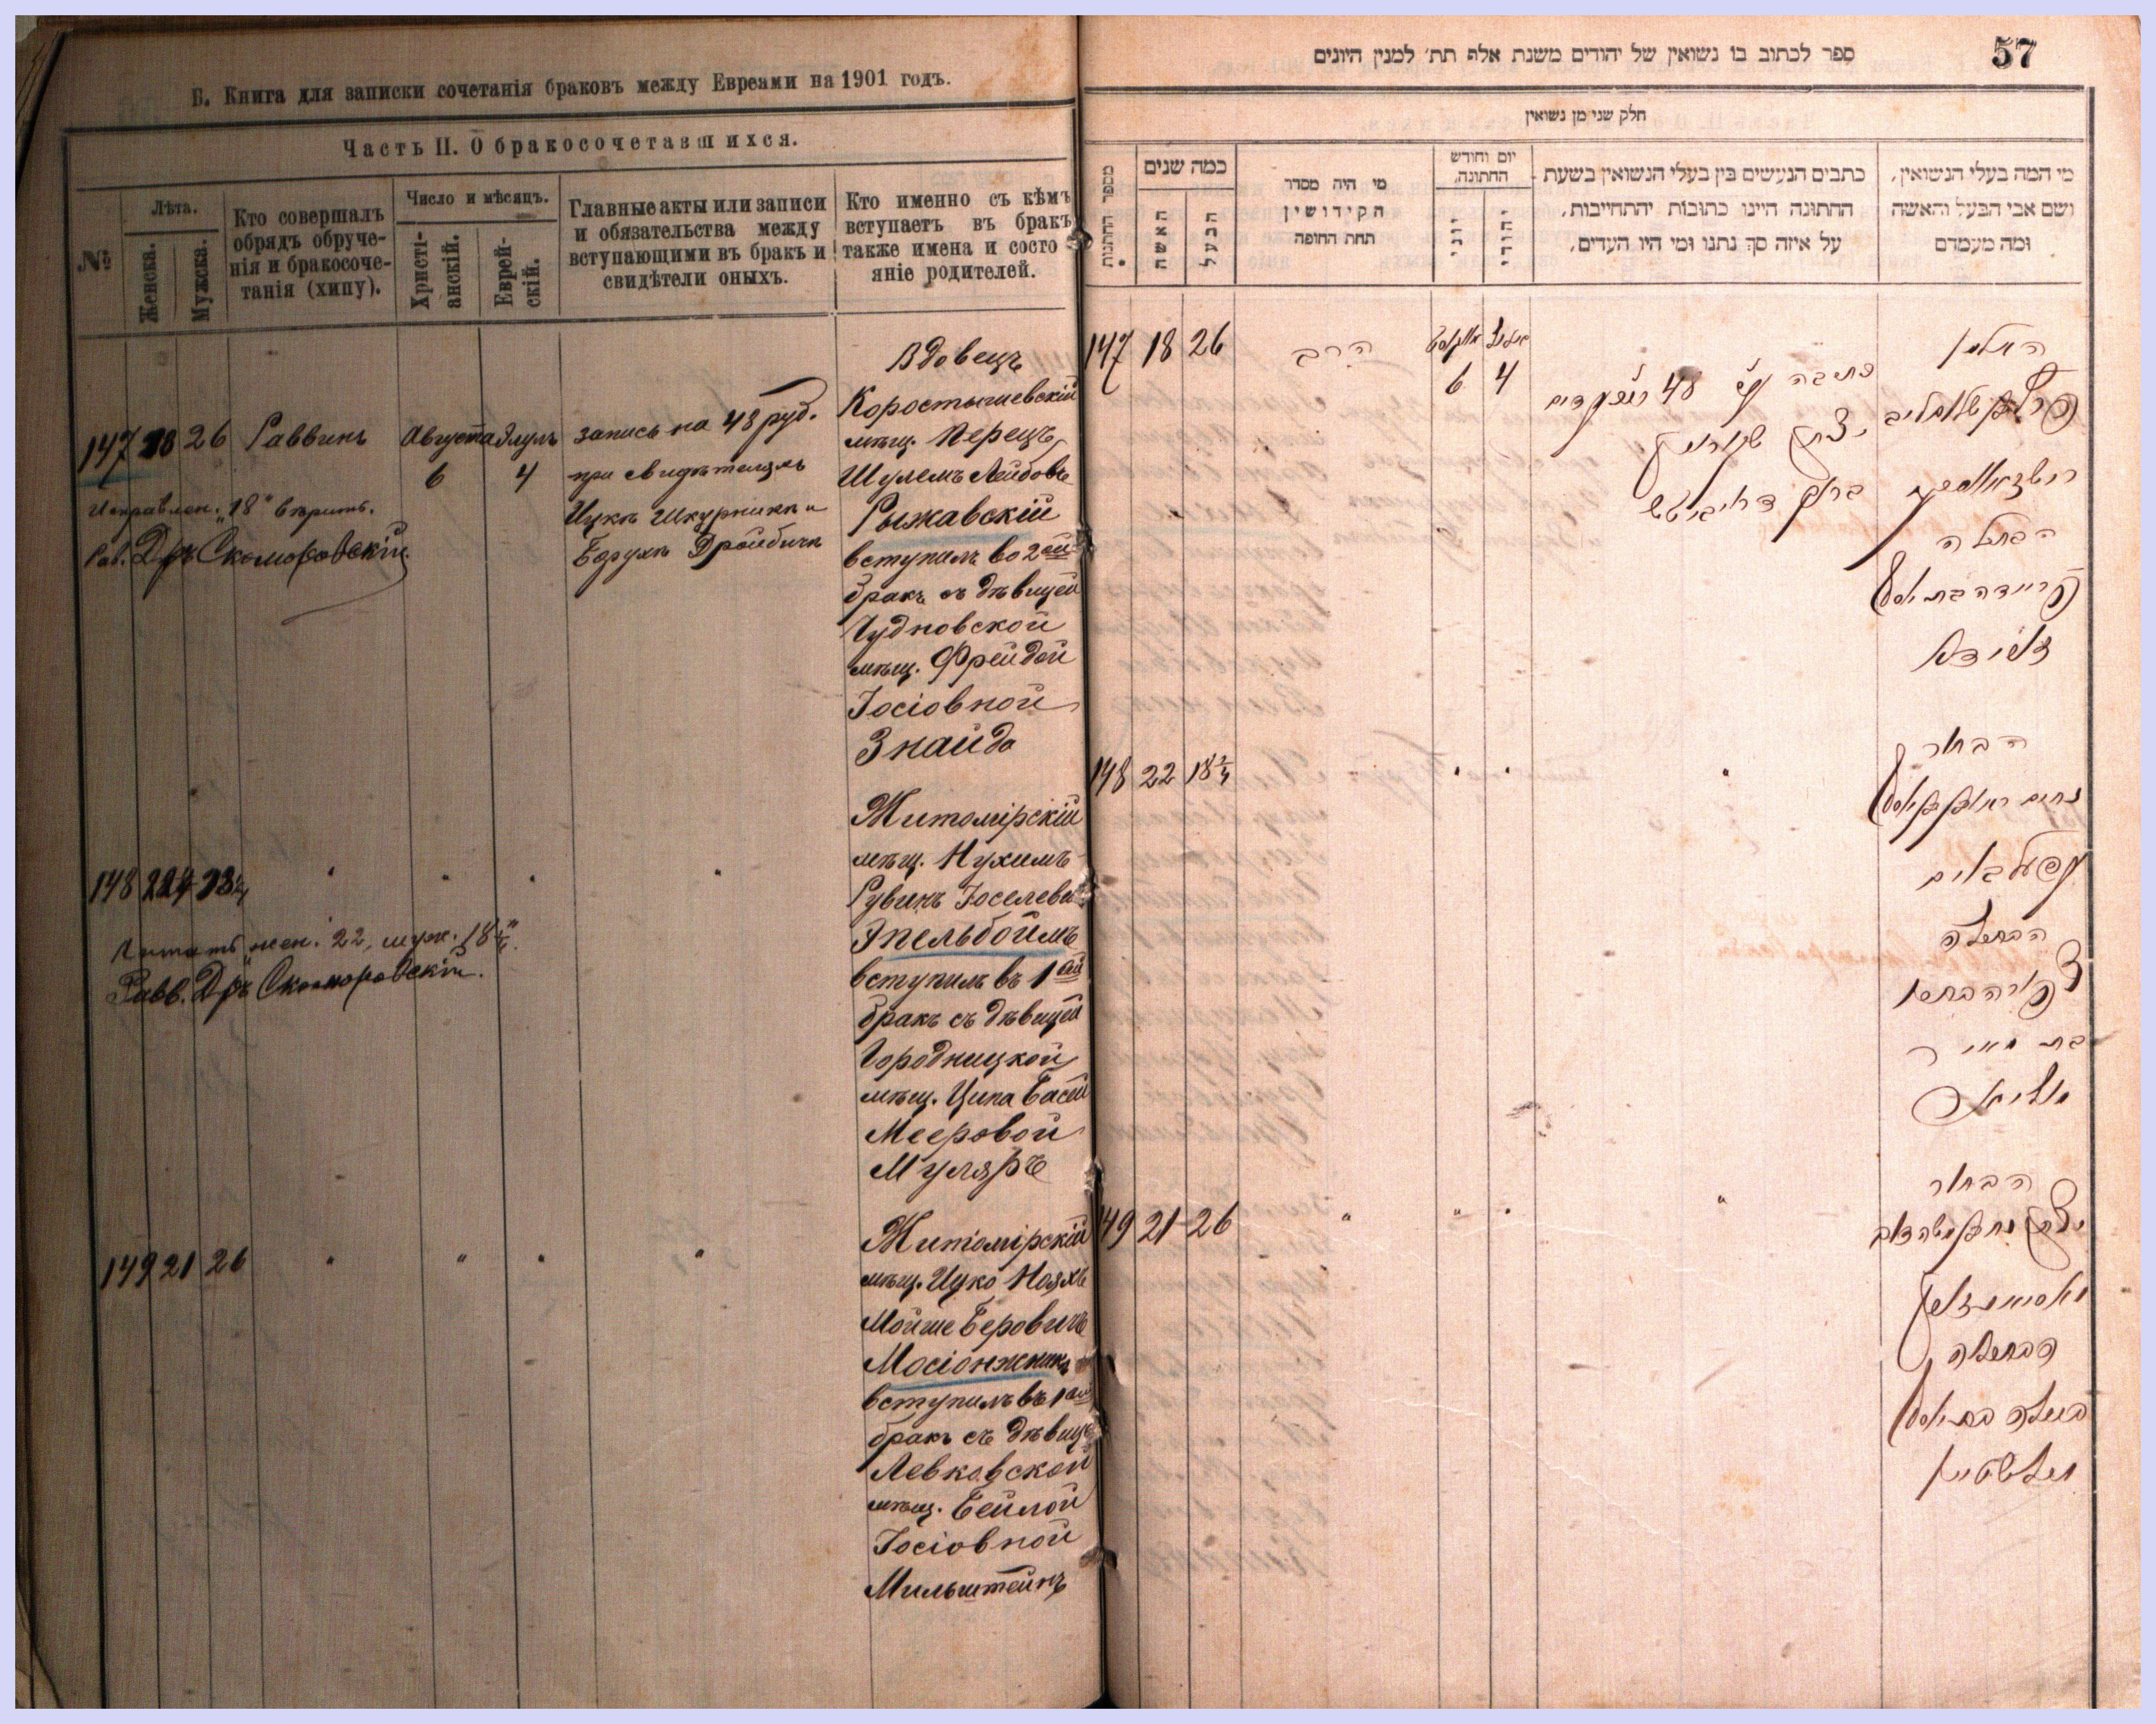 Б. Книга для записки сочетанія браковъ между Евреами на 1901 годъ.
Часть II. О бракосочетавшихся.
№
Лѣта.
Женска.
Мужска.
Кто совершалъ
обрядъ обруче-
нія и бракосоче-
танія (хипу).
Число и мѣсяцъ.
Христі-
анскій.
Еврей-
скій.
Главные акты или записи
и обязательства между
вступающими въ бракъ и
свидѣтели оныхъ.
Кто именно съ кѣмъ
вступаетъ въ бракъ
также имена и состо
яніе родителей.
147 18 26 Раввинъ Августа Элулъ
6 4
запись на 48 руб.
при свидѣтеляхъ
Ицкѣ Шкурникѣ и
Борухѣ
Исправлен. "18" вѣрить.
Рав. Дръ Скоморовскій
Вдовецъ
Коростышевскій
мѣщ. Перецъ
Шулемъ Лейбовъ
Рыжавскій
вступилъ во 2ой
бракъ съ дѣвицей
Чудновской
мѣщ. Фрейдой
Іосіовной
Знайда
148
Читать жен. 22, муж. 18
Равв. Дръ Скоморовскій.
Житомірскій
мѣщ. Нухимъ
Рувинъ Іоселевъ
Эпельбоймъ
вступилъ въ 1ый
бракъ съ дѣвицей
Городницкой
мѣщ. Ципа Басей
Мееровой
Муляръ
149 21 26 " " " "
Житомірскій
мѣщ. Ицко Нояхъ
Мойше Беровичъ
Мосіонжникъ
вступилъ въ 1ый
бракъ съ дѣвице
Левковской
мѣщ. Бейлой
Іосіовной
Мильштейнъ
57
ספר לכתוב בו נשואין של יהודים משנת אלף תת׳ למנין היונים
חלק שני מן נשואין
מספר החתונות
כמה שנים
האשה
הבעל
מי היה מסדר
הקידושין
תחת החופה
יום וחודש
החתונה,
יוני
יהודי
כתבים הנעשים בין בעלי הנשואין בשעת
החתונה היינו כתובות יהתחייבות,
על איזה סך נתנו ומי היו העדים,
מי המה בעלי הנשואין,
ושם אבי הבעל והאשה
ומה מעמדם
147 18 26 הרב אויגוסט אלול
6 4
האלמן
הבתולה
פריידה בת יאסל
148 22 18¾
הבחור
הבתולה
149 21 26
הבחור
הבתולה
ביילה בת יאסל
מילשטיין